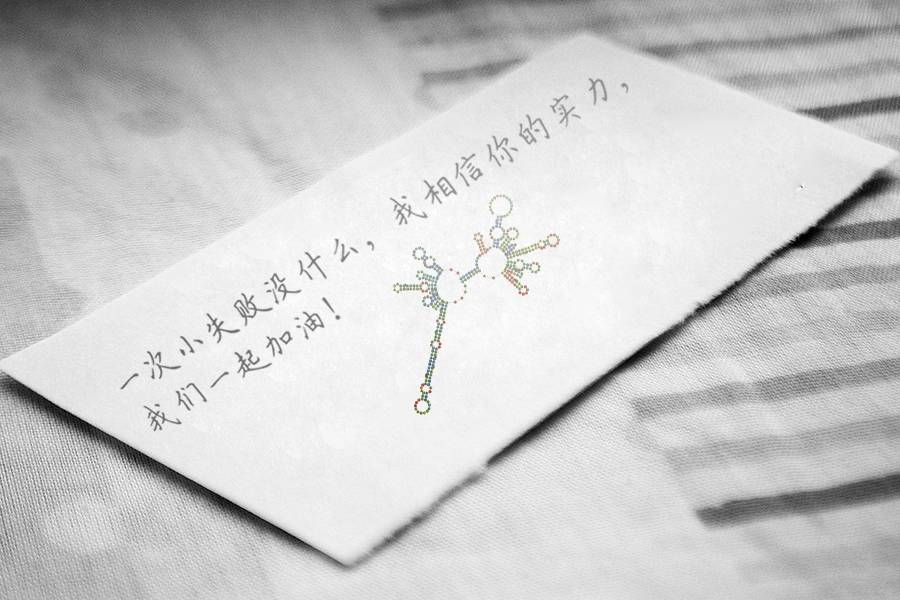 一次小失败没什么，我相信你的实力，
我们一起加油！